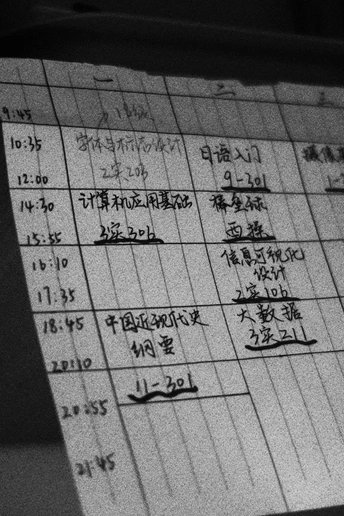 一 二 三
9:45
10:35 字体与标志设计 日语入门
12:00 2实203 9-301
14:30 计算机应用基础
15:55 3实306 西操
16:10 信息可视化
设计
17:35 2实106
18:45 中国近现代史 大数据
纲要 3实211
20:10
11-301
20:55
21:45